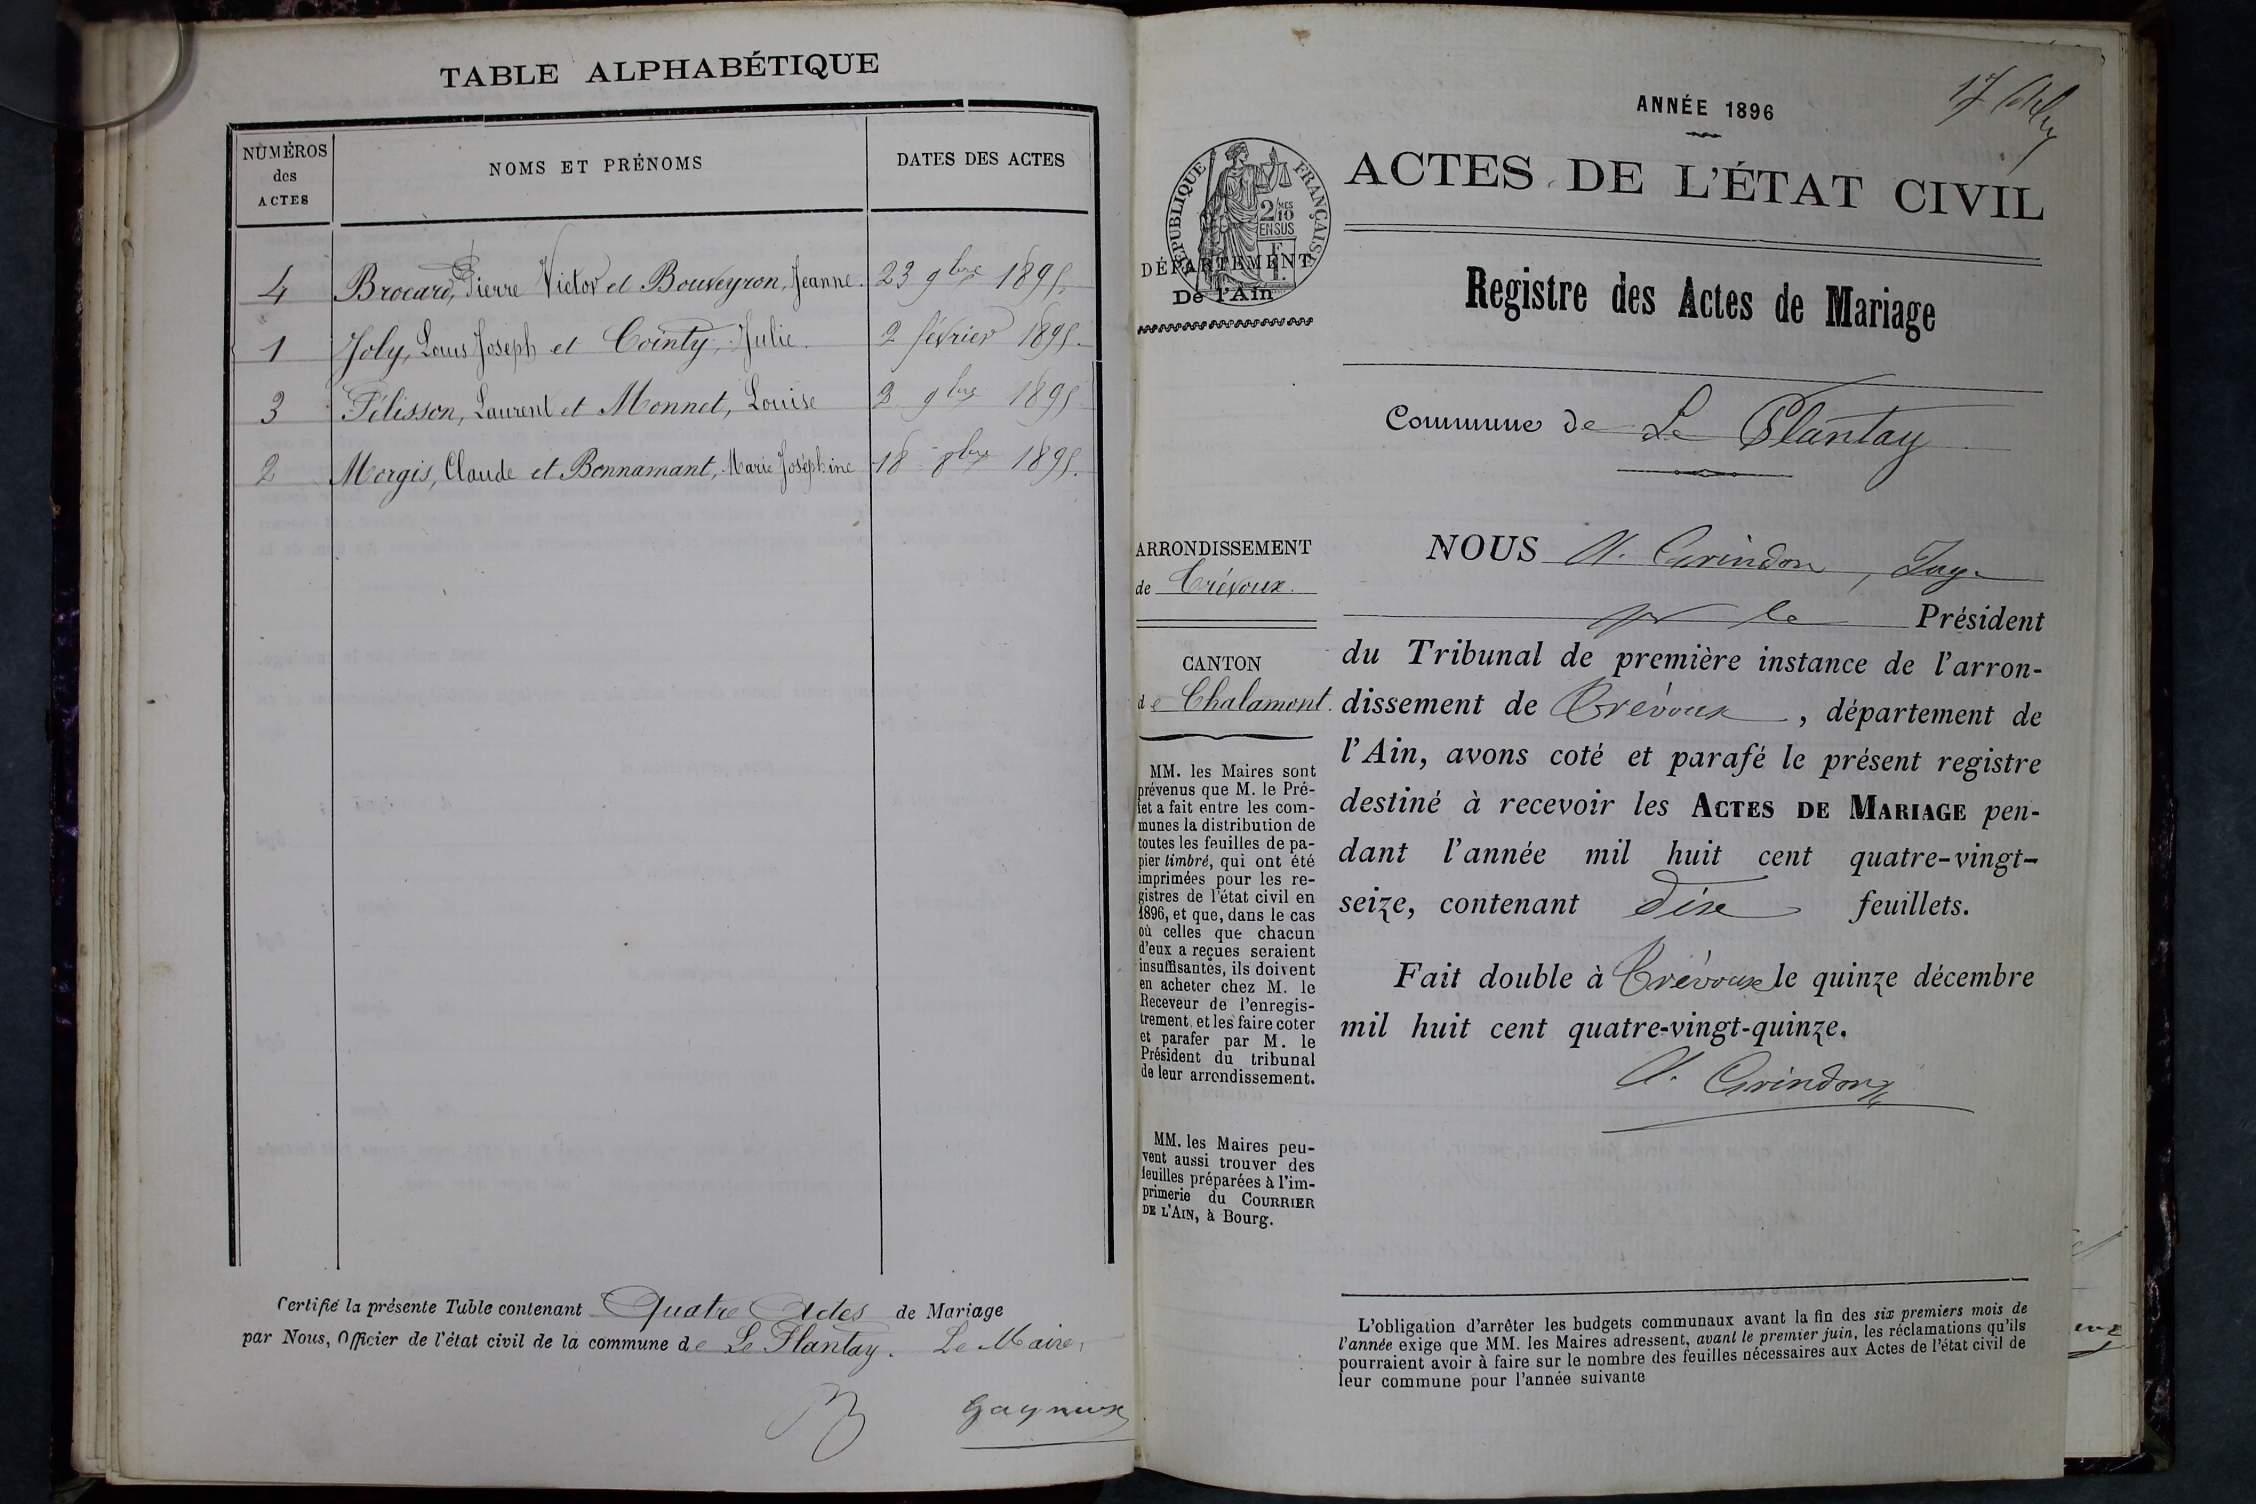 TABLE ALPHABÉTIQUE
NUMÉROS
des
ACTES
NOMS ET PRÉNOMS
DATES DES ACTES
4 Brocard, Pierre Victor et Bouveyron, Jeanne. 23 9bre 1895.
1 Joly, Louis Joseph et Cointy, Julie. 2 février 1895.
3 Pélisson, Laurent et Monnet, Louise 2 9bre 1895
2 Morgis, Claude et Bonnamant, Marie Joséphine 18 8bre 1895.
Certifié la présente Table contenant Quatre Actes de Mariage
par Nous, Officier de l'état civil de la commune de Le Plantay. Le Maire,
ANNÉE 1896
ACTES DE L'ÉTAT CIVIL
RÉPUBLIQUE FRANÇAISE
2/10 MES
EN SUS
DÉPARTEMENT
De l'Ain
Registre des Actes de Mariage
Commune de Le Plantay
ARRONDISSEMENT
de Trévoux.
CANTON
de Chalamont.
MM. les Maires sont
prévenus que M. le Pré-
fet a fait entre les com-
munes la distribution de
toutes les feuilles de pa-
pier timbré, qui ont été
imprimées pour les re-
gistres de l'état civil en
1896, et que, dans le cas
où celles que chacun
d'eux a reçues seraient
insuffisantes, ils doivent
en acheter chez M. le
Receveur de l'enregis-
trement, et les faire coter
et parafer par M. le
Président du tribunal
de leur arrondissement.
MM. les Maires peu-
vent aussi trouver des
feuilles préparées à l'im-
primerie du COURRIER
DE L'AIN, à Bourg.
NOUS A. Grindon, Juge
pr le Président
du Tribunal de première instance de l'arron-
dissement de Trévoux, département de
l'Ain, avons coté et parafé le présent registre
destiné à recevoir les ACTES DE MARIAGE pen-
dant l'année mil huit cent quatre-vingt-
seize, contenant dix feuillets.
Fait double à Trévoux le quinze décembre
mil huit cent quatre-vingt-quinze.
A. Grindon
L'obligation d'arrêter les budgets communaux avant la fin des six premiers mois de
l'année exige que MM. les Maires adressent, avant le premier juin, les réclamations qu'ils
pourraient avoir à faire sur le nombre des feuilles nécessaires aux Actes de l'état civil de
leur commune pour l'année suivante